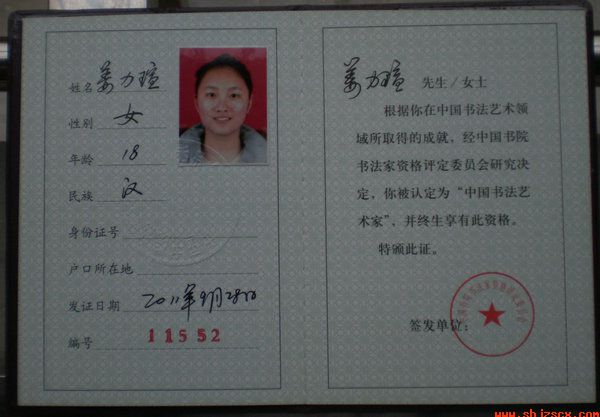 姓名 姜力瑄
性别 女
年龄 18
民族 汉
身份证号
户口所在地
发证日期 2011年9月28日
编号 11552
姜力瑄 先生/女士
根据你在中国书法艺术领
域所取得的成就，经中国书院
书法家资格评定委员会研究决
定，你被认定为“中国书法艺
术家”，并终生享有此资格。
特颁此证。
签发单位：
www.shjzscx.com